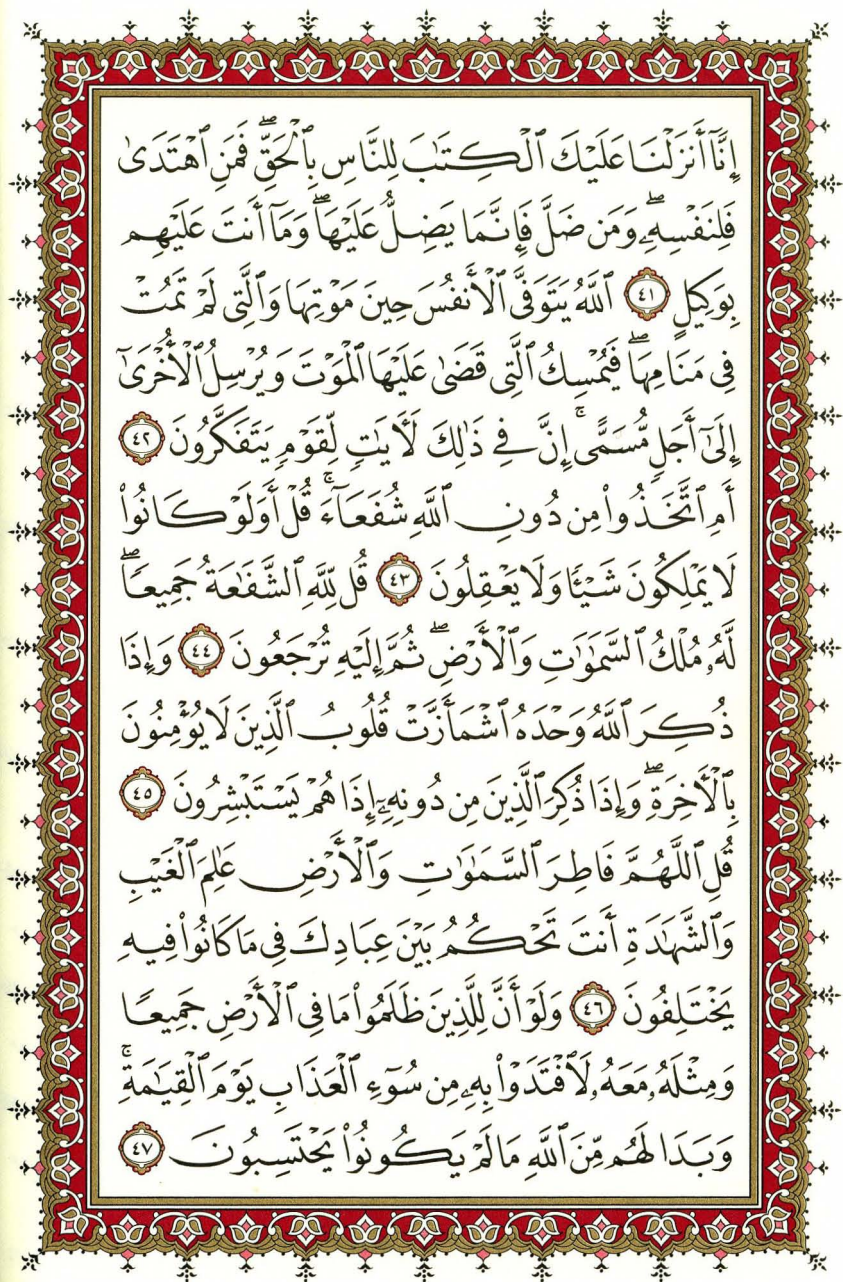 إِنَّآ أَنزَلْنَا عَلَيْكَ ٱلْكِتَٰبَ لِلنَّاسِ بِٱلْحَقِّ ۖ فَمَنِ ٱهْتَدَىٰ
فَلِنَفْسِهِۦ ۖ وَمَن ضَلَّ فَإِنَّمَا يَضِلُّ عَلَيْهَا ۖ وَمَآ أَنتَ عَلَيْهِم
بِوَكِيلٍ ٤١ ٱللَّهُ يَتَوَفَّى ٱلْأَنفُسَ حِينَ مَوْتِهَا وَٱلَّتِى لَمْ تَمُتْ
فِى مَنَامِهَا ۖ فَيُمْسِكُ ٱلَّتِى قَضَىٰ عَلَيْهَا ٱلْمَوْتَ وَيُرْسِلُ ٱلْأُخْرَىٰٓ
إِلَىٰٓ أَجَلٍ مُّسَمًّى ۚ إِنَّ فِى ذَٰلِكَ لَءَايَٰتٍ لِّقَوْمٍ يَتَفَكَّرُونَ ٤٢
أَمِ ٱتَّخَذُوا۟ مِن دُونِ ٱللَّهِ شُفَعَآءَ ۚ قُلْ أَوَلَوْ كَانُوا۟
لَا يَمْلِكُونَ شَيْـًٔا وَلَا يَعْقِلُونَ ٤٣ قُل لِّلَّهِ ٱلشَّفَٰعَةُ جَمِيعًا ۖ
لَّهُۥ مُلْكُ ٱلسَّمَٰوَٰتِ وَٱلْأَرْضِ ۖ ثُمَّ إِلَيْهِ تُرْجَعُونَ ٤٤ وَإِذَا
ذُكِرَ ٱللَّهُ وَحْدَهُ ٱشْمَأَزَّتْ قُلُوبُ ٱلَّذِينَ لَا يُؤْمِنُونَ
بِٱلْءَاخِرَةِ ۖ وَإِذَا ذُكِرَ ٱلَّذِينَ مِن دُونِهِۦٓ إِذَا هُمْ يَسْتَبْشِرُونَ ٤٥
قُلِ ٱللَّهُمَّ فَاطِرَ ٱلسَّمَٰوَٰتِ وَٱلْأَرْضِ عَٰلِمَ ٱلْغَيْبِ
وَٱلشَّهَٰدَةِ أَنتَ تَحْكُمُ بَيْنَ عِبَادِكَ فِى مَا كَانُوا۟ فِيهِ
يَخْتَلِفُونَ ٤٦ وَلَوْ أَنَّ لِلَّذِينَ ظَلَمُوا۟ مَا فِى ٱلْأَرْضِ جَمِيعًا
وَمِثْلَهُۥ مَعَهُۥ لَٱفْتَدَوْا۟ بِهِۦ مِن سُوٓءِ ٱلْعَذَابِ يَوْمَ ٱلْقِيَٰمَةِ ۚ
وَبَدَا لَهُم مِّنَ ٱللَّهِ مَا لَمْ يَكُونُوا۟ يَحْتَسِبُونَ ٤٧